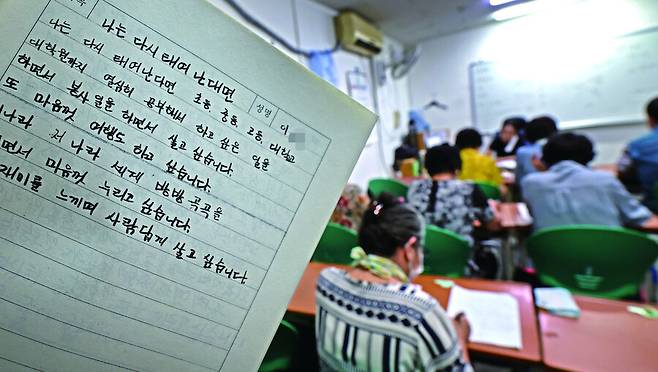 목
나는 다시 태어난다면
성명
이
나는 다시 태어난다면 초등, 중등, 고등, 대학교
대학원까지 열심히 공부해서 하고 싶은 일을
하면서 봉사일을 하면서 살고 싶습니다.
또 마음껏 여행도 하고 싶습니다.
이나라 저 나라 세계 방방곡곡을
하면서 마음껏 누리고 싶습니다.
재미를 느끼며 사람답게 살고 싶습니다